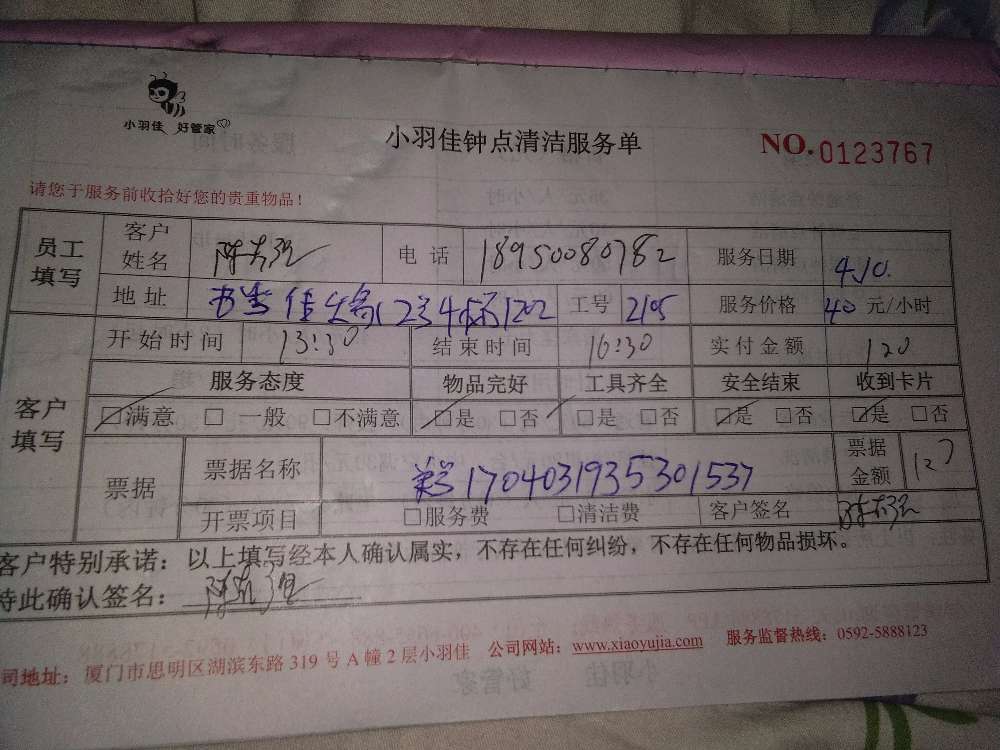 小羽佳 好管家
小羽佳钟点清洁服务单
NO.0123767
请您于服务前收拾好您的贵重物品!
员工填写 客户姓名 电话 18950080782 服务日期 4.10.
地址 12号4梯1202 工号 2105 服务价格 40元/小时
客户填写 开始时间 13:30 结束时间 16:30 实付金额 120
服务态度 物品完好 工具齐全 安全结束 收到卡片
☑满意 □一般 □不满意 ☑是 □否 ☑是 □否 ☑是 □否 ☑是 □否
票据 票据名称 1704031935301537 票据金额 120
开票项目 □服务费 □清洁费 客户签名
客户特别承诺:以上填写经本人确认属实,不存在任何纠纷,不存在任何物品损坏。
特此确认签名:
司地址:厦门市思明区湖滨东路 319 号 A 幢 2 层小羽佳 公司网站:www.xiaoyujia.com 服务监督热线:0592-5888123